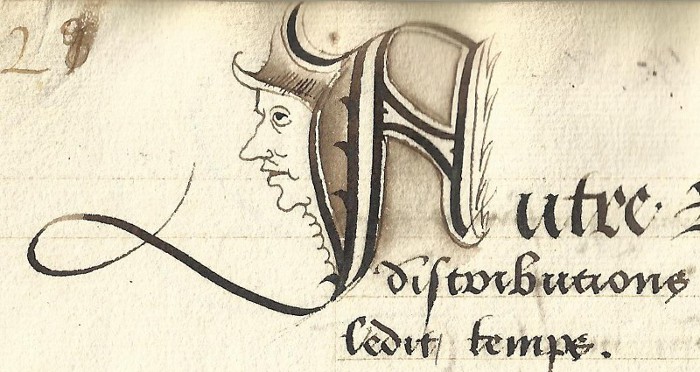 Autre
distributions
ledit temps.